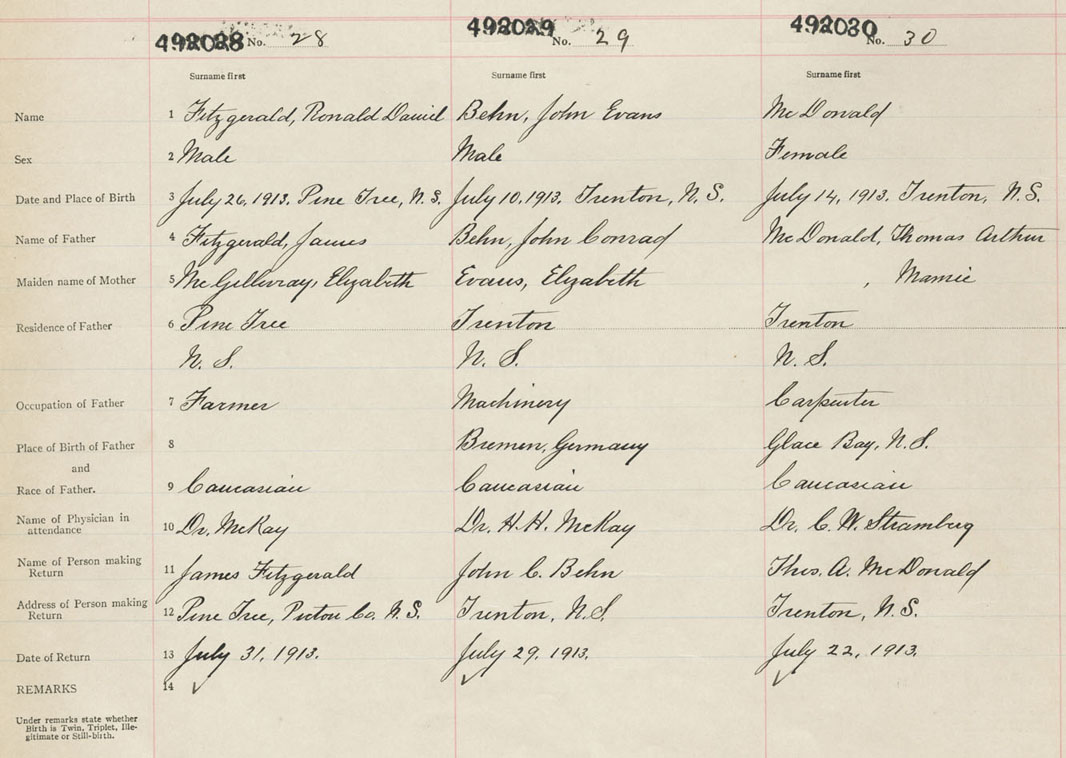 492028 No. 28 492029 No. 29 492030 No. 30
Surname first Surname first Surname first
Name 1 Fitzgerald, Ronald Daniel Behn, John Evans McDonald
Sex 2 Male Male Female
Date and Place of Birth 3 July 26, 1913. Pine Tree, N.S. July 10, 1913. Trenton, N.S. July 14, 1913. Trenton, N.S.
Name of Father 4 Fitzgerald, James Behn, John Conrad McDonald, Thomas Arthur
Maiden name of Mother 5 McGillivray, Elizabeth Evans, Elizabeth , Mamie
Residence of Father 6 Pine Tree Trenton Trenton
N. S. N. S. N. S.
Occupation of Father 7 Farmer Machinery Carpenter
Place of Birth of Father 8 Bremen, Germany Glace Bay, N.S.
and
Race of Father. 9 Caucasian Caucasian Caucasian
Name of Physician in
attendance 10 Dr. McKay Dr. H. H. McKay Dr. C. W. Stramberg
Name of Person making
Return 11 James Fitzgerald John C. Behn Thos. A. McDonald
Address of Person making
Return 12 Pine Tree, Pictou Co. N.S. Trenton, N.S. Trenton, N.S.
Date of Return 13 July 31, 1913. July 29, 1913. July 22, 1913.
REMARKS 14
Under remarks state whether
Birth is Twin, Triplet, Ille-
gitimate or Still-birth.